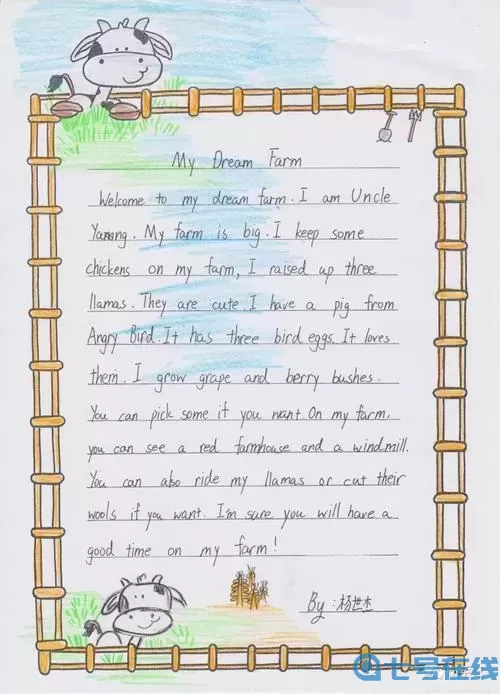 My Dream Farm
Welcome to my dream farm. I am Uncle
My farm is big. I keep some
chickens on my farm, I raised up three
llamas. They are cute. I have a pig from
Angry Bird. It has three bird eggs. It loves
them. I grow grape and berry bushes.
You can pick some if you want. On my farm,
you can see a red farmhouse and a windmill.
You can also ride my llamas or cut their
wools if you want. I'm sure you will have a
good time on my farm!
By: 杨世杰
七号在线